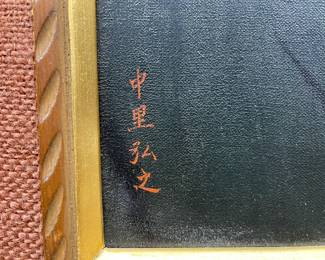 中里弘之